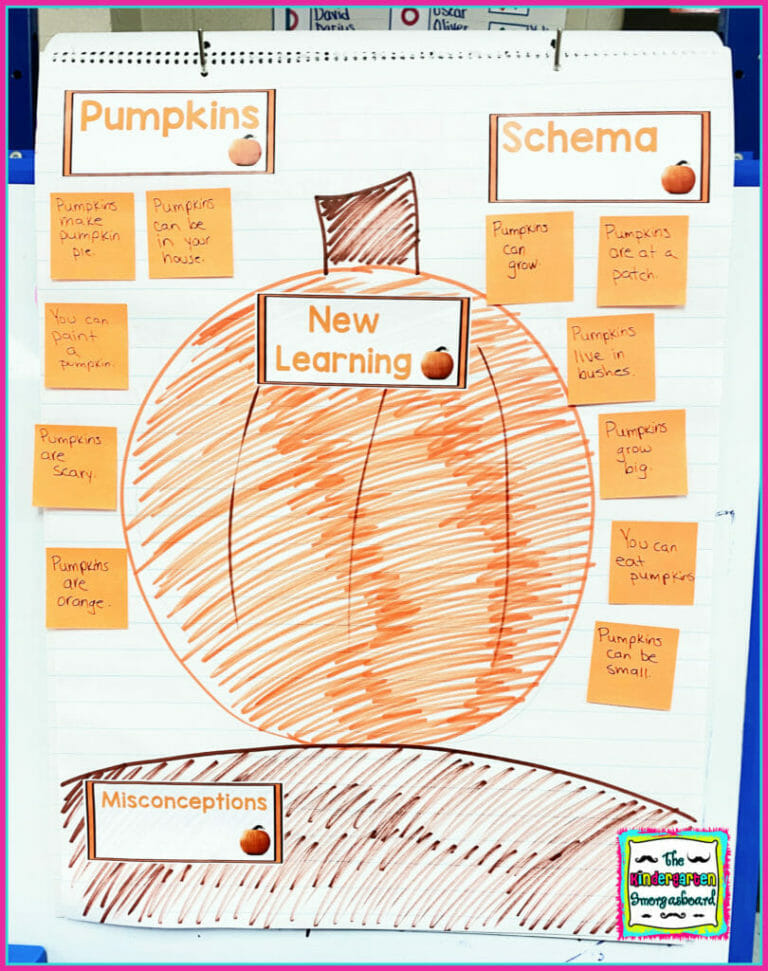 David
Darius
Oscar
Oliver
Pumpkins
Schema
Pumpkins
make
pumpkin
pie.
Pumpkins
can be
in your
house.
You can
paint
a
pumpkin.
Pumpkins
are
scary.
Pumpkins
are
orange.
New
Learning
Pumpkins
can
grow.
Pumpkins
are at a
patch.
Pumpkins
live in
bushes.
Pumpkins
grow
big.
You can
eat
pumpkins
Pumpkins
can be
small.
Misconceptions
The
Kindergarten
Smorgasboard